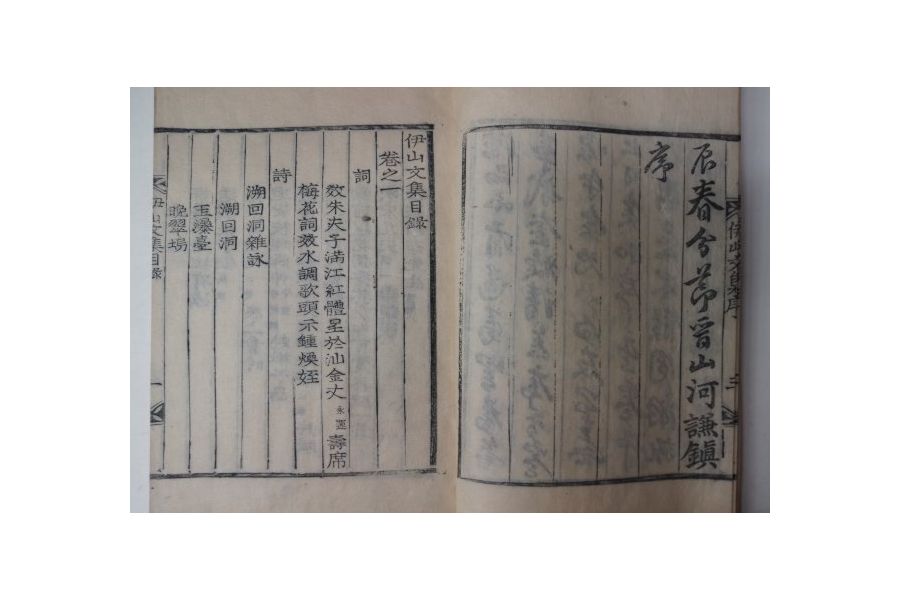 辰春分節晋山河謙鎭
序
伊山文集序
三
伊山文集目錄
卷之一
詞
效朱夫子滿江紅體呈於汕金丈永運壽席
梅花詞效水調歌頭示鍾煥姪
詩
溯回洞雜詠
溯回洞
玉瀑臺
晩翠塲
伊山文集目錄
一